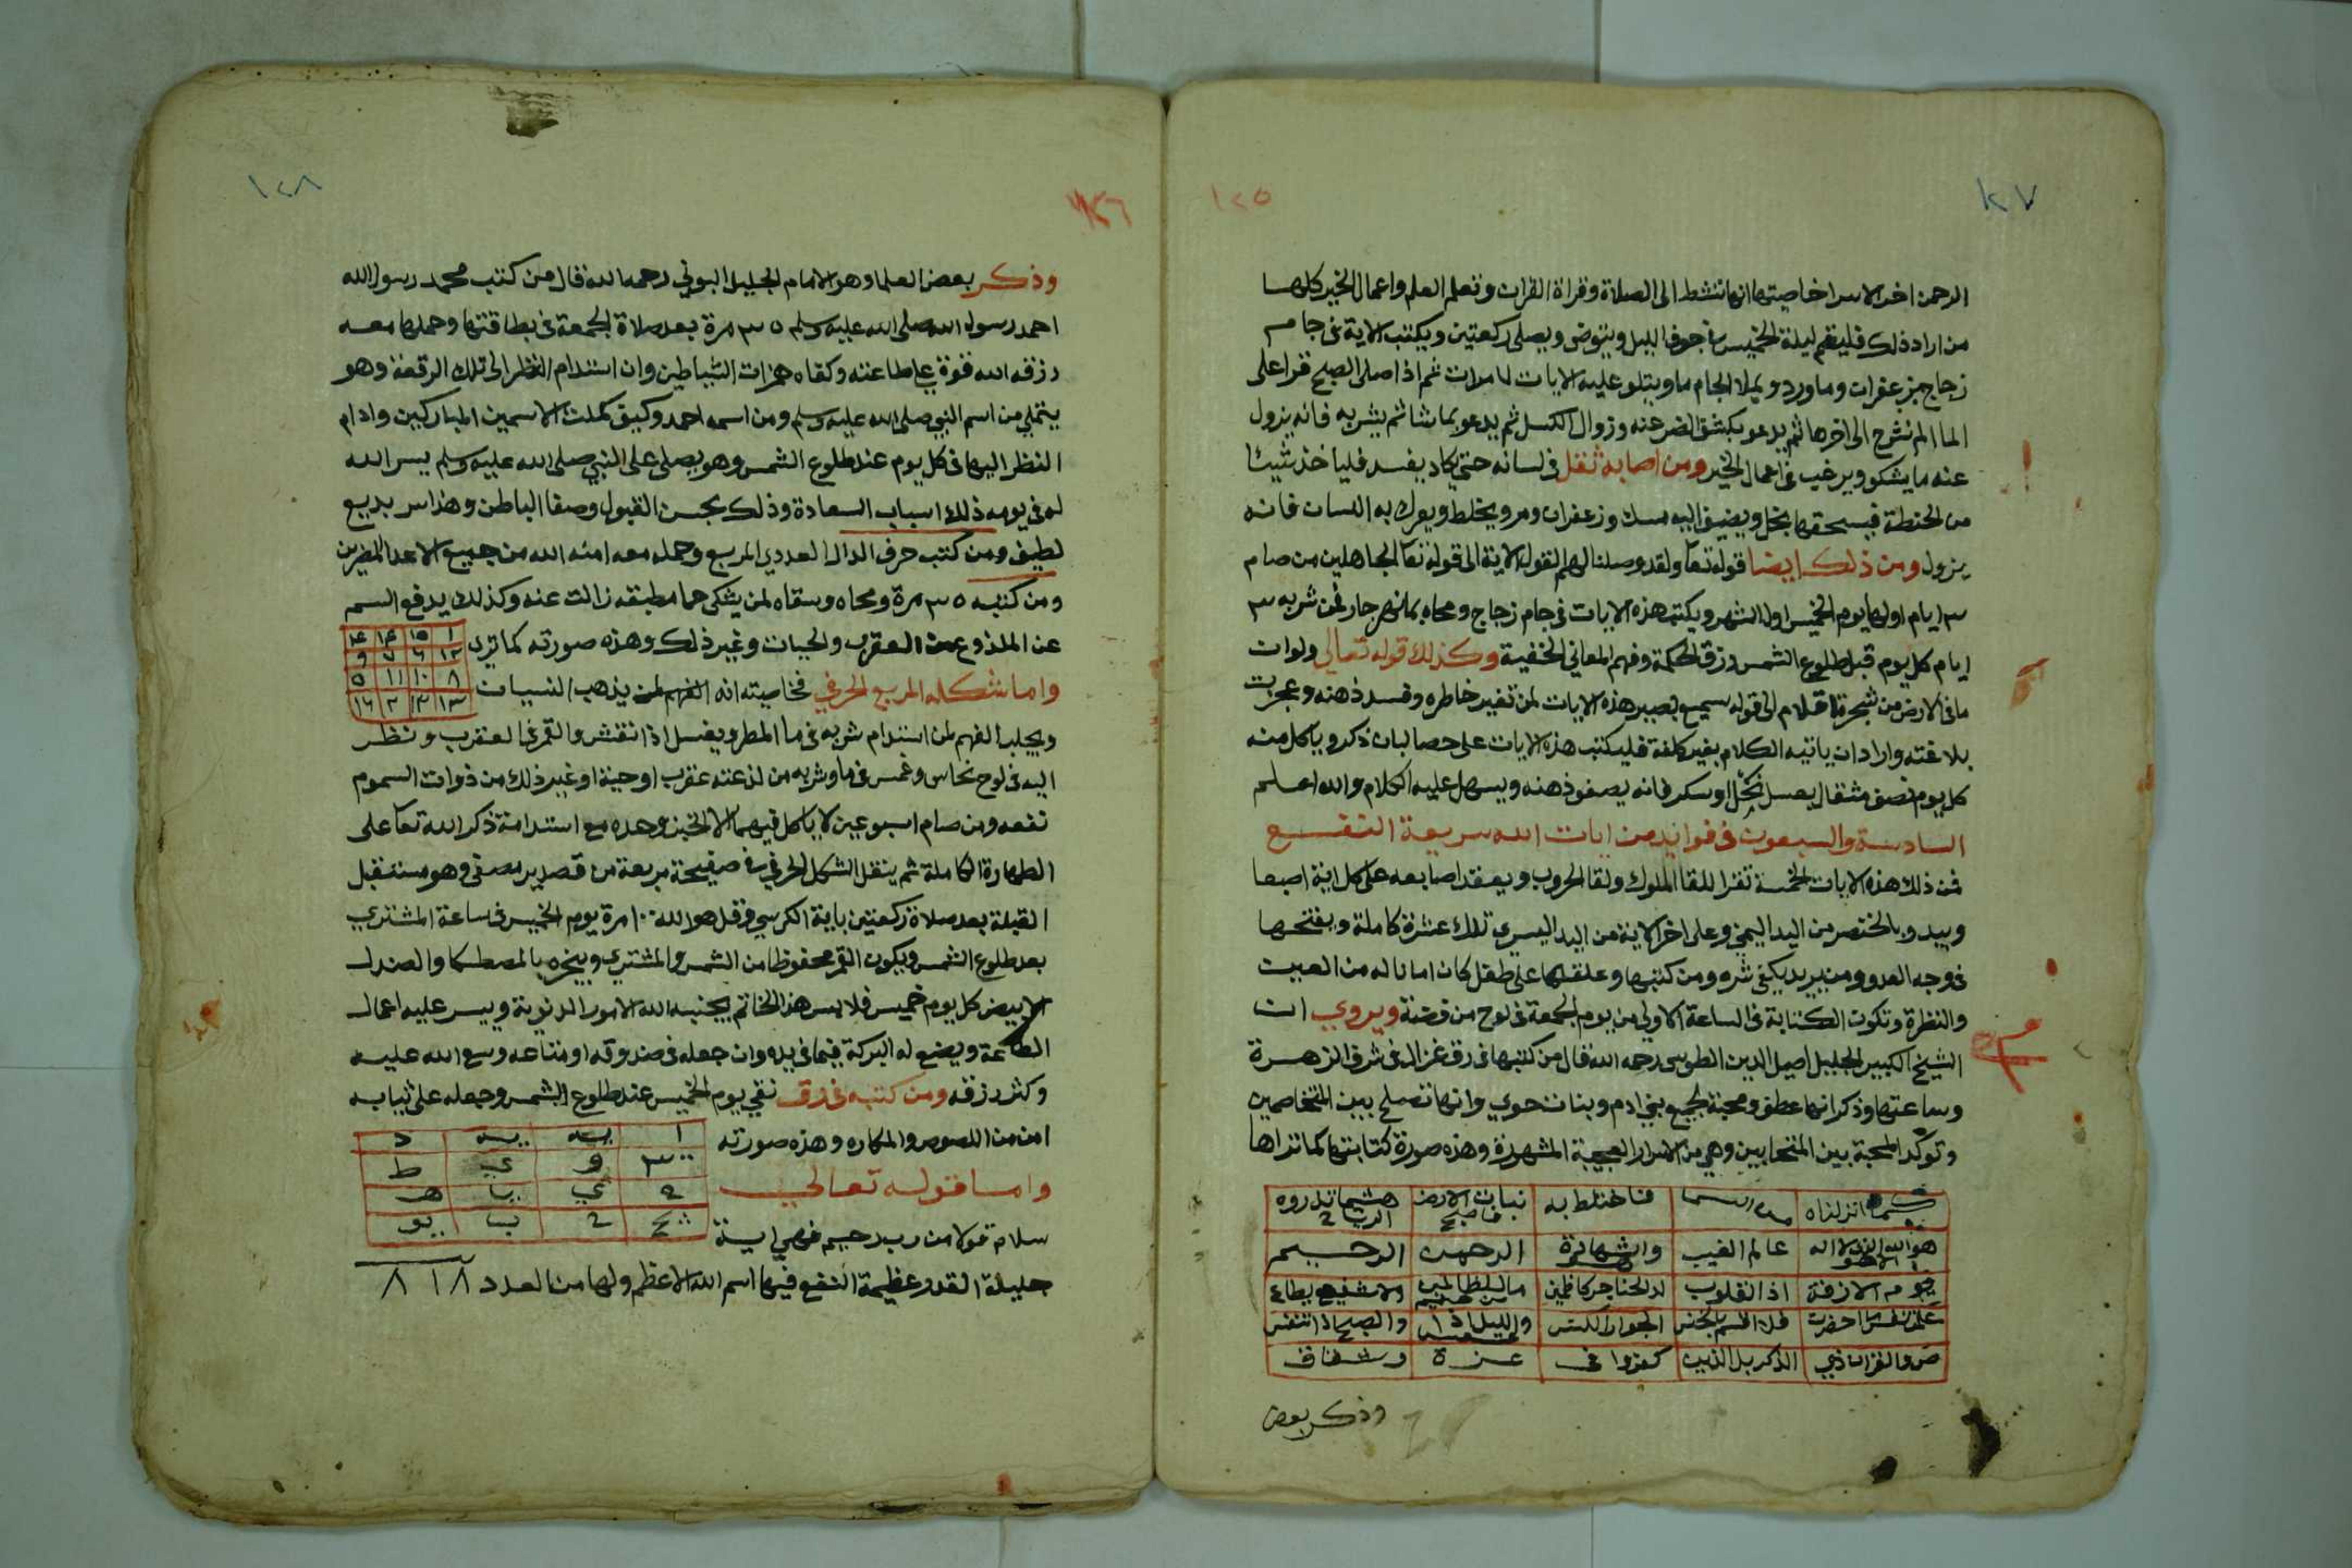 ١٢٧
١٢٥
الرحمن اخر الاسرا خاصيتها انها تنشط الى الصلاة وقراة القران وتعلم العلم واعمال الخير كلها
من اراد ذلك فليقم ليلة الخميس في جوف الليل ويتوض ويصلي ركعتين ويكتب الاية في جام
زجاج بزعفران وما ورد ويملا الجام ما ويتلو عليه الايات مرات ثم اذا صلى الصبح قرا على
الما الم نشرح الى اخرها ثم يدعو بكشف الضر عنه وزوال الكسل ثم يدعو بما شا ثم يشربه فانه يزول
عنه ما يشكو ويرغب في اعمال الخير ومن اصابه ثقل في لسانه حتى يكاد يفسد فلياخذ شيئا
من الحنطة فيسحقها بخل ويضيف اليه مسك وزعفران ومر ويخلط ويعرك به اللسان فانه
يزول ومن ذلك ايضا قوله تعا ولقد وصلنا لهم القول الاية الى قوله تعا الجاهلين من صام
٣ ايام اولها يوم الخميس اول الشهر ويكتب هذه الايات في جام زجاج ومحاه بما نهر جار فمن شربه ٣
ايام كل يوم قبل طلوع الشمس رزق الحكمة وفهم المعاني الخفية وكذلك قوله تعالى ولو ان
ما في الارض من شجرة اقلام الى قوله سميع بصير هذه الايات لمن تغير خاطره وفسد ذهنه وعجزت
بلاغته واراد ان ياتيه الكلام بغير كلفة فليكتب هذه الايات على حصا لبان ذكر وياكل منه
كل يوم نصف مثقال بعسل نحل او سكر فانه يصفو ذهنه ويسهل عليه الكلام والله اعلم
السادسة والسبعون في فوايد من ايات الله سريعة النفع
فمن ذلك هذه الايات الخمسة تقرا للقا الملوك ولقا الحروب ويعقد اصابعه على كل اية اصبعا
ويبدو بالخنصر من اليد اليمنى وعلى اخر الاية من اليد اليسرى تلك عشرة كاملة ويفتحها
في وجه العدو ومن يريد يكفى شره ومن كتبها وعلقها على طفل كان امانا له من العين
والنظرة وتكون الكتابة في الساعة الاولى من يوم الجمعة في لوح من فضة ويروى ان
الشيخ الكبير الجليل اصيل الدين الطوسي رحمه الله قال من كتبها في رق غزال في شرف الزهرة
وساعتها وذكر انها عطف ومحبة لجميع بني ادم وبنات حوى وانها تصلح بين المتخاصمين
وتوكد المحبة بين المتحابين وهي من الاسرار العجيبة المشهورة وهذه صورة كتابتها كما تراها
كما انزلناه | من السما | فاختلط به | نبات الارض فاصبح | هشيما تذروه الرياح
هو الله الذي لا اله الا هو | عالم الغيب | والشهادة | الرحمن | الرحيم
يوم الازفة | اذ القلوب | لدى الحناجر كاظمين | ما للظالمين من حميم | ولا شفيع يطاع
علمت نفس ما احضرت | فلا اقسم بالخنس | الجوار الكنس | والليل اذا عسعس | والصبح اذا تنفس
ص والقران ذي | الذكر بل الذين | كفروا في | عزة | وشقاق
وذكر بعض
١٢٨
١٢٦
وذكر بعض العلما وهو الامام الجليل البوني رحمه الله قال من كتب محمد رسول الله
احمد رسول الله صلى الله عليه وسلم ٣٥ مرة بعد صلاة الجمعة في بطاقتها وحملها معه
رزقه الله قوة على طاعته وكفاه همزات الشياطين وان استدام النظر الى تلك الرقعة وهو
يتخيل من اسم النبي صلى الله عليه وسلم ومن اسمه احمد وكيف كملت الاسمين المباركين وادام
النظر اليها في كل يوم عند طلوع الشمس وهو يصلي على النبي صلى الله عليه وسلم يسر الله
له في يومه ذلك اسباب السعادة وذلك بحسن القبول وصفا الباطن وهذا سر بديع
لطيف ومن كتب حرف الدال العددي المربع وحمله معه امنه الله من جميع الاعدا المضرين
ومن كتبه ٣٥ مرة ومحاه وسقاه لمن يشكى حما مطبقه زالت عنه وكذلك يدفع السم
عن الملذوع من العقرب والحيات وغير ذلك وهذه صورته كما ترى
١ | ١٥ | ١٤ | ٤
١٢ | ٦ | ٧ | ٩
٨ | ١٠ | ١١ | ٥
١٣ | ٣ | ٢ | ١٦
واما شكله المربع الحرفي فخاصيته انه الفهم لمن يذهب النسيان
ويجلب الفهم لمن استدام شربه في ما المطر ويغسل اذا نقش والقمر في العقرب ونظر
اليه في لوح نحاس وغمس في ما وشربه من لذعته عقرب او حية او غير ذلك من ذوات السموم
نفعه ومن صام اسبوعين لا ياكل فيهما الا الخبز وحده مع استدامة ذكر الله تعا على
الطهارة الكاملة ثم ينقل الشكل الحرفي في صفيحة مربعة من قصدير مصفى وهو مستقبل
القبلة بعد صلاة ركعتين باية الكرسي وقل هو الله ١٠٠ مرة يوم الخميس في ساعة المشتري
بعد طلوع الشمس ويكون القمر محفوظا من الشمس والمشتري ويبخره بالمصطكا والصندل
الابيض كل يوم خميس فلابس هذا الخاتم يجنبه الله الامور الدنوية وييسر عليه اعمال
الطاعة ويضع له البركة فيما في يده وان جعله في صندوقه او متاعه وسع الله عليه
وكثر رزقه ومن كتبه في رق نقي يوم الخميس عند طلوع الشمس وجعله على ثيابه
امن من اللصوص والمكاره وهذه صورته
واما قوله تعالى
سلام قولا من رب رحيم فهي اية
جليلة القدر عظيمة النفع فيها اسم الله الاعظم ولها من العدد ٨١٨